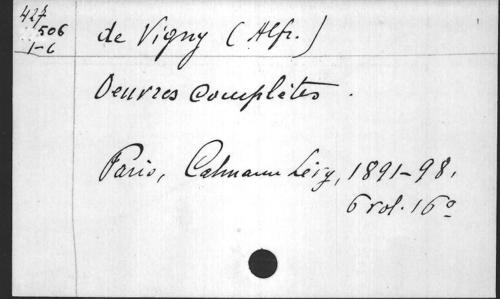 427
506
1-6
de Vigny (Alfr.)
Oeuvres complètes.
Paris, Calmann Lévy, 1891-98.
6 vol. 16º